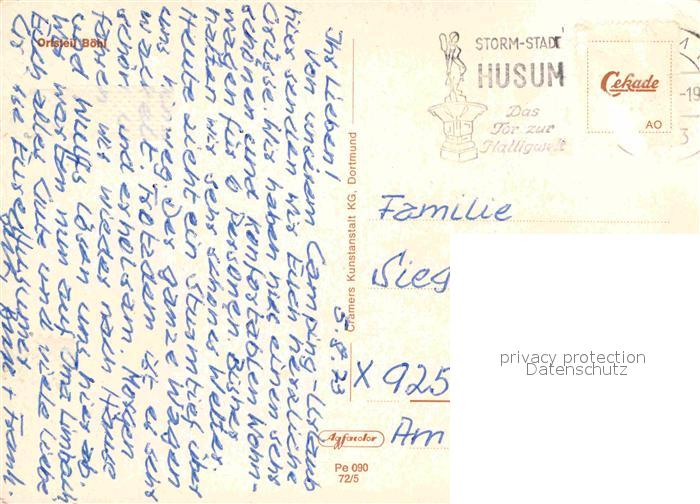 Ortsteil Böhl
5.8.73
Ihr Lieben!
Von unserem Camping-Urlaub
hier senden wir Euch herzliche
Grüsse. Wir haben hier einen sehr
schönen und komfortablen Wohn-
wagen für 6 Personen. Bisher
hatten wir sehr schönes Wetter.
Heute zieht ein Sturmtief über
uns hinweg. Der ganze Wagen
wackelt. Trotzdem ist es sehr
schön und erholsam. Morgen
fahren wir wieder nach Hause
und lösen uns hier ab.
Wir warten nun auf Oma
Euch alles Gute und viele liebe
Grüsse
Cramers Kunstanstalt KG, Dortmund
Agfacolor
Pe 090
72/5
STORM-STADT
HUSUM
Das
Tor zur
Halligwelt
Cekade
AO
1
-19
3
Familie
Sieg
X 925
Am
privacy protection
Datenschutz